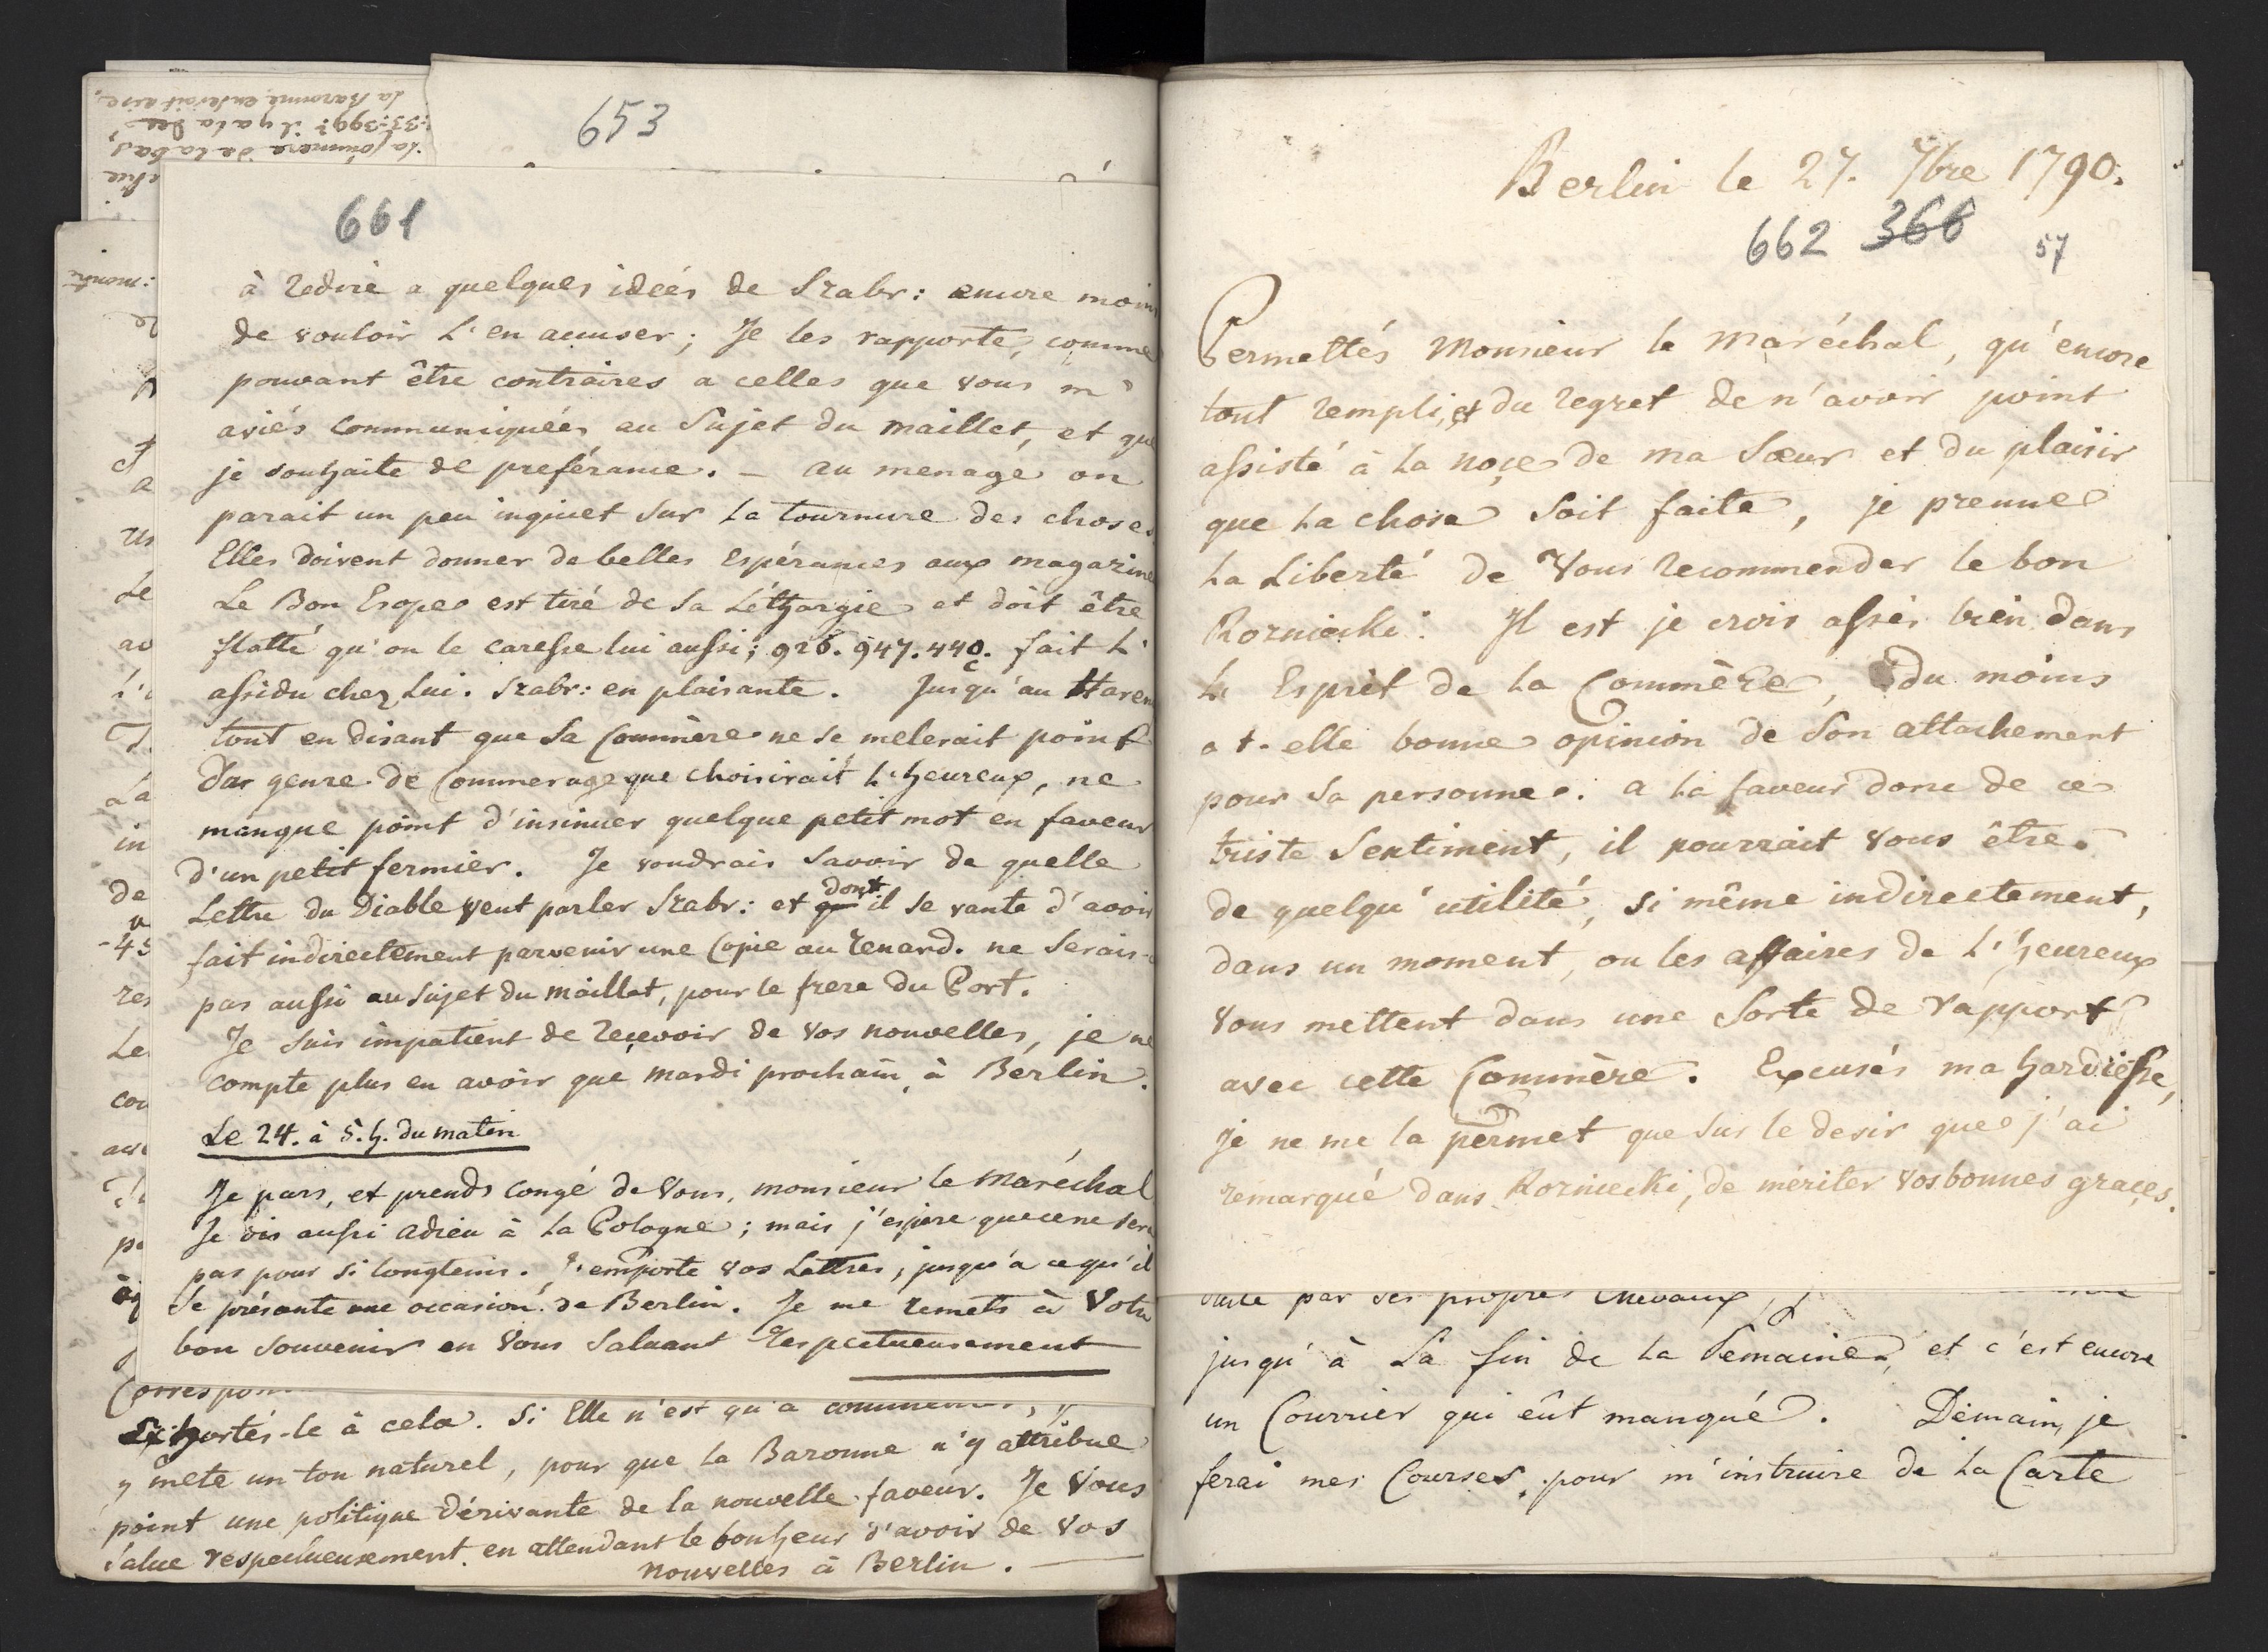 653
661
à redire a quelques idées de Szabr: encore moins
de vouloir l'en accuser; Je les rapporte, comme
pouvant être contraires a celles que vous m'
aviés communiquées au Sujet du maillet, et que
je souhaite de preférance. – au menage on
parait un peu inquiet sur la tournure des choses
Elles doivent donner de belles Espérances aux magazine
Le Bon Esope est tiré de sa Léthargie et doit être
flatté qu'on le caresse lui aussi; 926. 947. 440. fait l'
assidu chez Lui. Szabr: en plaisante. Jusqu'au Haren
tout en disant que sa Commère ne se melerait point
du genre de Commerage que choisirait l'heureux, ne
manque point d'insinuer quelque petit mot en faveur
d'un petit fermier. Je voudrais savoir de quelle
Lettre du Diable veut parler Szabr: et dont il se vante d'avoir
fait indirectement parvenir une Copie au renard. ne serais-
pas aussi au sujet du maillet, pour le frere du Port.
Je suis impatient de reçevoir de vos nouvelles, je ne
compte plus en avoir que mardi prochain à Berlin.
Le 24. à 5. h. du matin
Je pars, et prends Congé de Vous, monsieur le Maréchal
Je dis aussi adieu à la Pologne; mais j'espère que ce ne sera
pas pour si longtems. J'emporte vos Lettres, jusqu'a ce qu'il
se présente une occasion de Berlin. Je me remets à Votre
bon souvenir en Vous saluant respectueusement
Exhortés-le à cela. Si Elle n'est qu'a
y mete un ton naturel, pour que la Baronne n'y attribue
point une politique dérivante de la nouvelle faveur. Je Vous
salue respectueusement en attendant le bonheur d'avoir de vos
nouvelles à Berlin.
Berlin le 27. 7bre 1790.
662 366 57
Permettés Monsieur le Maréchal, qu'encore
tout rempli, et du regret de n'avoir point
assisté à la noçe de ma Sœur et du plaisir
que la chose soit faite, je prenne
la Liberté de Vous recommender le bon
Rozniecki. Il est je crois assés bien dans
l'Esprit de la Commère, du moins
a t-elle bonne opinion de son attachement
pour sa personne. a la faveur donc de ce
triste Sentiment, il pourrait vous être
de quelqu'utilité, si même indirectement,
dans un moment, ou les affaires de l'heureux
vous mettent dans une sorte de rapport
avec cette Commère. Excusés ma hardiesse,
je ne me la permet que sur le desir que j'ai
remarqué dans Rozniecki, de mériter vos bonnes graçes.
par ses propres chevaux,
jusqu'à la fin de la Semaine, et c'est encore
un Courrier qui eût manqué. Demain, je
ferai mes Courses, pour m'instruire de la Carte